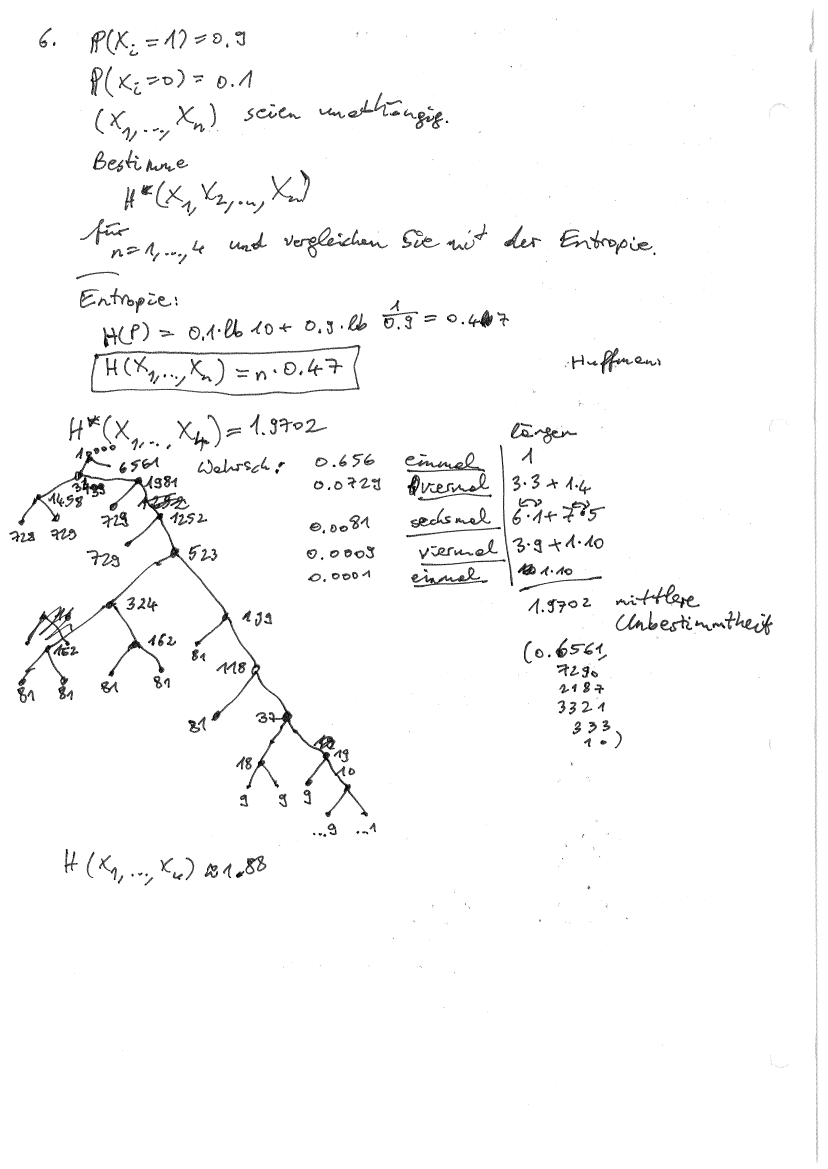 6. P(X_i = 1) = 0.9
P(X_i = 0) = 0.1
(X_1, ..., X_n) seien unabhängig.
Bestimme
H*(X_1, X_2, ..., X_n)
für
n = 1, ..., 4 und vergleichen Sie mit der Entropie.
Entropie:
H(P) = 0.1 · lb 10 + 0.9 · lb 1/0.9 = 0.47
H(X_1, ..., X_n) = n · 0.47
Huffman
H*(X_1, ..., X_4) = 1.9702
längen
Wahrsch: 0.656 einmal 1
0.0729 viermal 3·3 + 1·4
0.0081 sechsmal 6·1 + 7·5
0.0009 viermal 3·9 + 1·10
0.0001 einmal 1·10
1.9702 mittlere
Unbestimmtheit
(0.6561,
7290
2187
3321
333
10)
10000
6561
3439 1981
1458 729 1252
729 729
729 523
324 199
162 162 81 118
81 81 81 81
81 37
18 19
9 9 9 10
...9 ...1
H(X_1, ..., X_4) ≈ 1.88